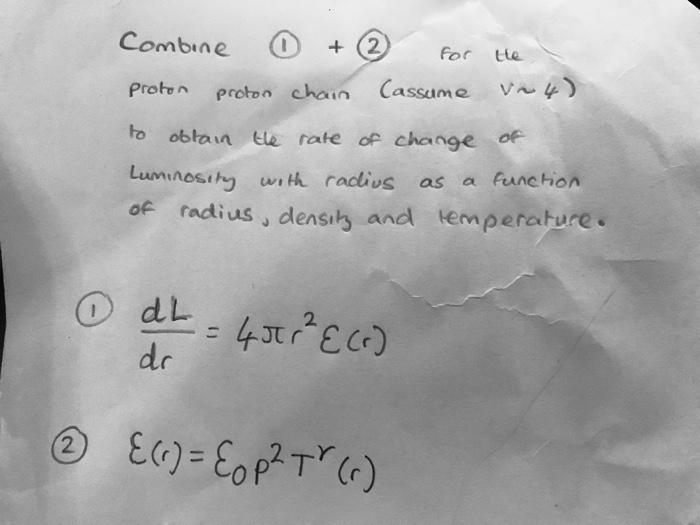 Combine ① + ② for the
proton proton chain (assume ν~4)
to obtain the rate of change of
Luminosity with radius as a function
of radius, density and temperature.
① dL/dr = 4πr²ε(r)
② ε(r) = ε₀ρ²T^ν(r)